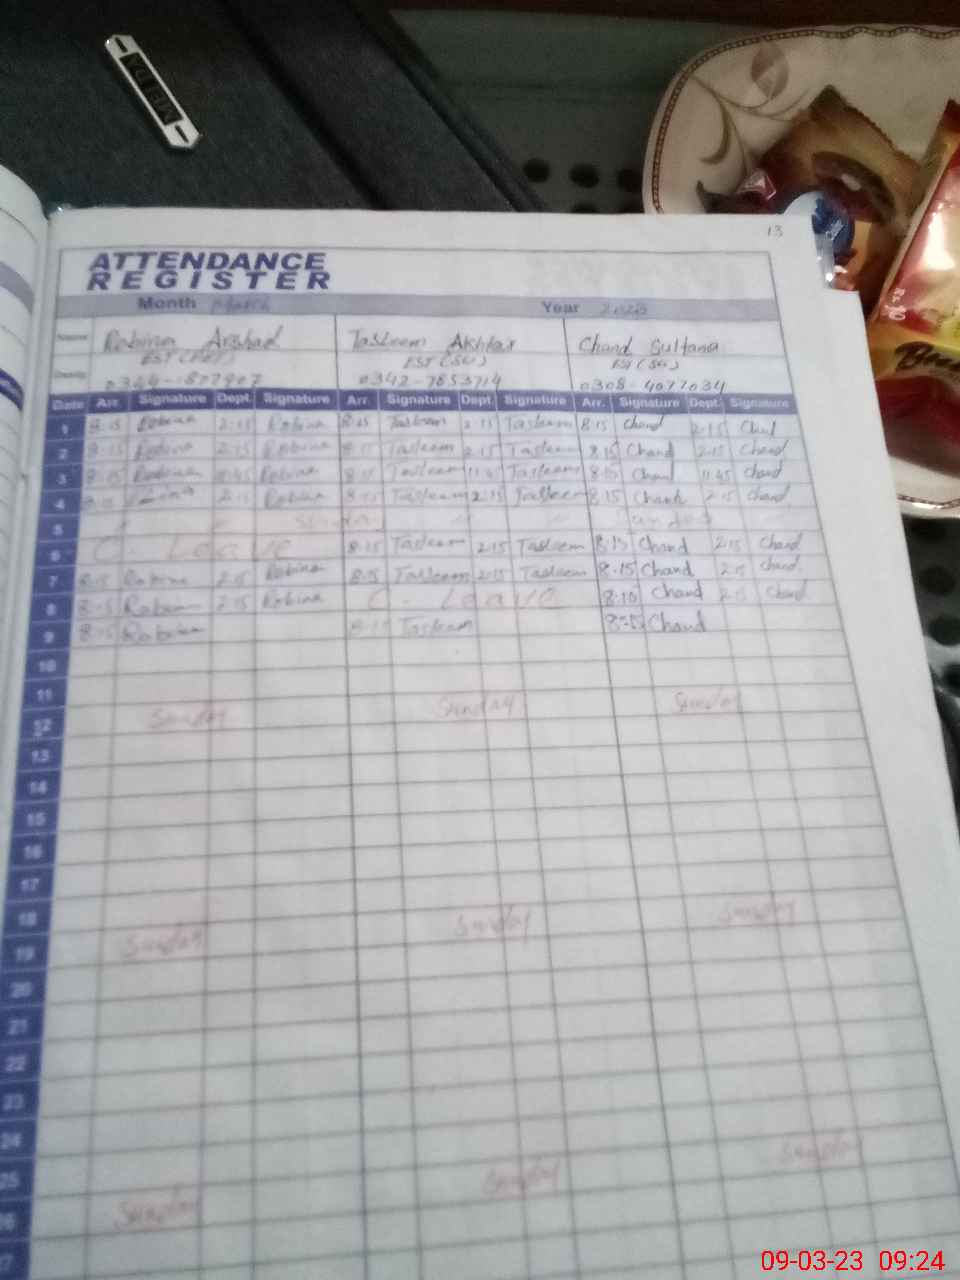 13
ATTENDANCE
REGISTER
Month March Year
Name Robina Arshad Tasleem Akhtar Chand Sultana
EST (SG)
0342-7853714 0308-4077034
Date Arr. Signature Dept. Signature Arr. Signature Dept. Signature Arr. Signature Dept. Signature
1 8:15 Robina 2:15 Robina 8:15 Tasleem 2:15 Tasleem 8:15 Chand 2:15 Chand
2 8:15 Robina 2:15 Robina 8:15 Tasleem 2:15 Tasleem 8:15 Chand 2:15 Chand
3 8:15 Robina 11:45 Robina 8:15 Tasleem 11:45 Tasleem 8:10 Chand 11:45 Chand
4 8:15 2:15 Robina 8:15 Tasleem 2:15 Tasleem 8:15 Chand 2:15 Chand
5 Sunday Sunday
6 C. Leave 8:15 Tasleem 2:15 Tasleem 8:15 Chand 2:15 Chand
7 8:15 Robina 2:15 Robina 8:15 Tasleem 2:15 Tasleem 8:15 Chand 2:15 Chand
8 8:15 Robina 2:15 Robina C. Leave 8:10 Chand 2:15 Chand
9 8:15 Robina 8:15 Tasleem 8:15 Chand
10
11
12 Sunday Sunday Sunday
13
14
15
16
17
18
19 Sunday Sunday Sunday
20
21
22
23
24
25
26 Sunday Sunday Sunday
09-03-23 09:24